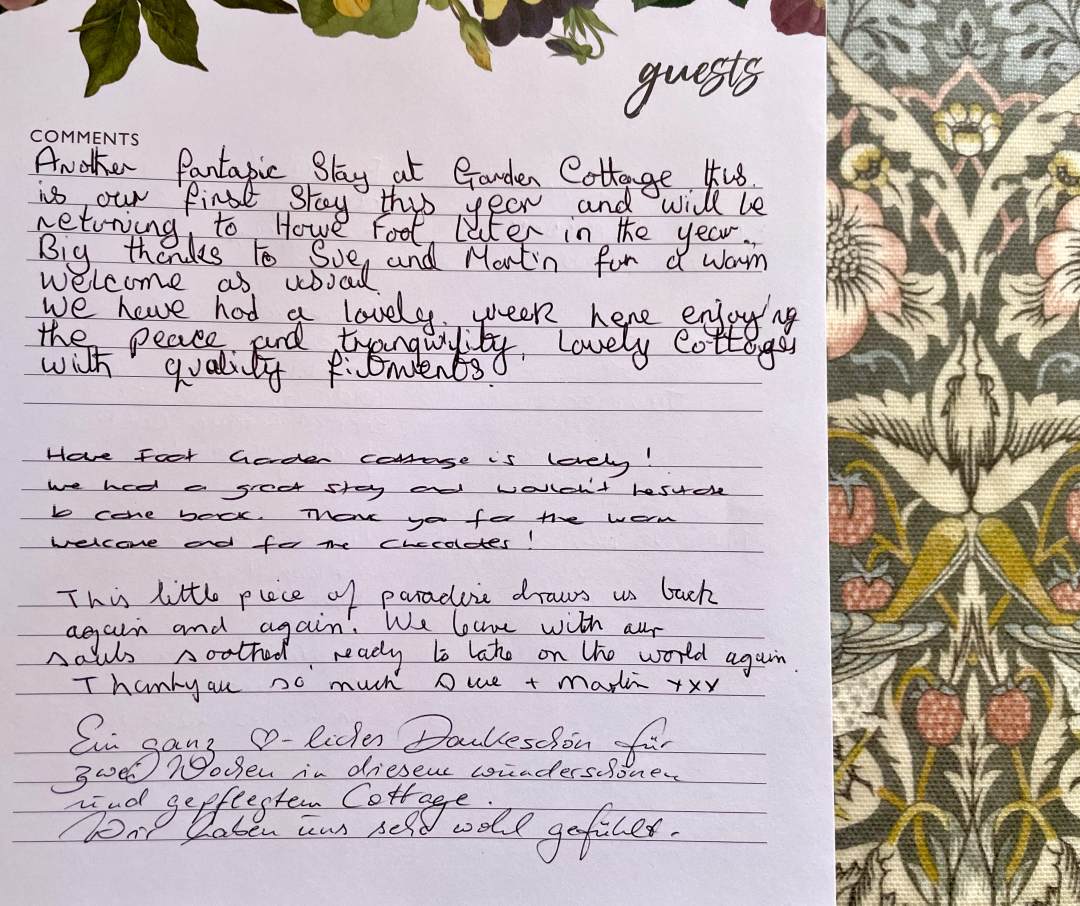 guests
COMMENTS
Another fantasic Stay at Garden Cottage this
is our first Stay this year and will be
returning to Howe Foot later in the year.
Big thanks to Sue, and Martin for a warm
welcome as usual.
We have had a lovely week here enjoying
the peace and tranquility, Lovely Cottages
with quality fitments.
Howe Foot Garden cottage is lovely!
We had a great stay and wouldn't hesitate
to come back. Thank you for the warm
welcome and for the chocolates!
This little piece of paradise draws us back
again and again! We leave with our
souls soothed, ready to take on the world again.
Thankyou so much Sue + Martin xxx
Ein ganz ♡-liches Dankeschön für
zwei Wochen in diesem wunderschönen
und gepflegtem Cottage.
Wir haben uns sehr wohl gefühlt.